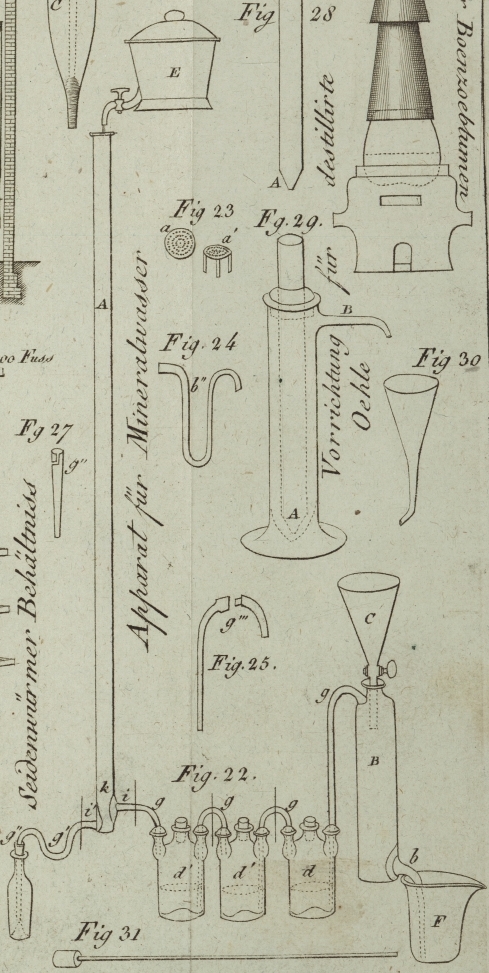 C
E
Fig 28
A
destillirte
r Boenzoeblumen
Fig 23
a
a'
Fg. 29.
für
B
A
Apparat für Mineralwasser
Fig. 24
b"
Vorrichtung
Oehle
Fig 30
00 Fuss
Fg 27
g"
A
Seidenwürmer Behältniss
g'''
Fig. 25.
C
g
B
b
F
Fig. 22.
k
i
i"
g
g
g
g"
g"
d'
d'
d
Fig 31